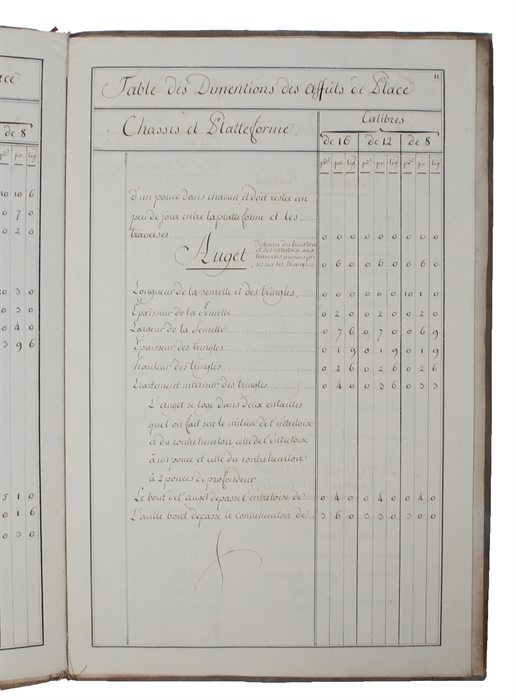 ace
de 8
pd. po. lig
10 10 6
0 7 0
0 2 0
10 3 0
0 3 0
0 4 0
3 9 6
5 1 0
0 1 6
0 3 0
11
Table des Dimentions des affûts de Place
Chassis et Platteforme.
Calibres
de 16 de 12 de 8
pd. po. lig pd. po. lig pd. po. lig
d'un pouce dans chacun il doit rester un
peu de jour entre la platteforme et les
traverses 0 0 0 0 0 0 0 0 0
Auget 0 6 0 0 6 0 0 6 0
Longueur de la semelle et des tringles 0 0 0 0 0 0 10 1 0
Epaisseur de la Semelle 0 2 0 0 2 0 0 2 0
Largeur de la Semelle 0 7 6 0 7 0 0 6 9
Epaisseur des tringles 0 1 9 0 1 9 0 1 9
hauteur des tringles 0 2 6 0 2 6 0 2 6
Ecartement interieur des tringles 0 4 0 0 3 6 0 3 3
L'auget se loge dans deux entailles
que l'on fait sur le milieu de l'entretoise
et du contreheurtoire celle de l'entretoise
à un pouce et celle du contreheurtoire
à 2 pouces de profondeur
Le bout de l'auget depasse l'entretoise de 0 4 0 0 4 0 0 4 0
L'autre bout depasse le contreheurtoire de 3 6 0 3 3 0 3 0 0